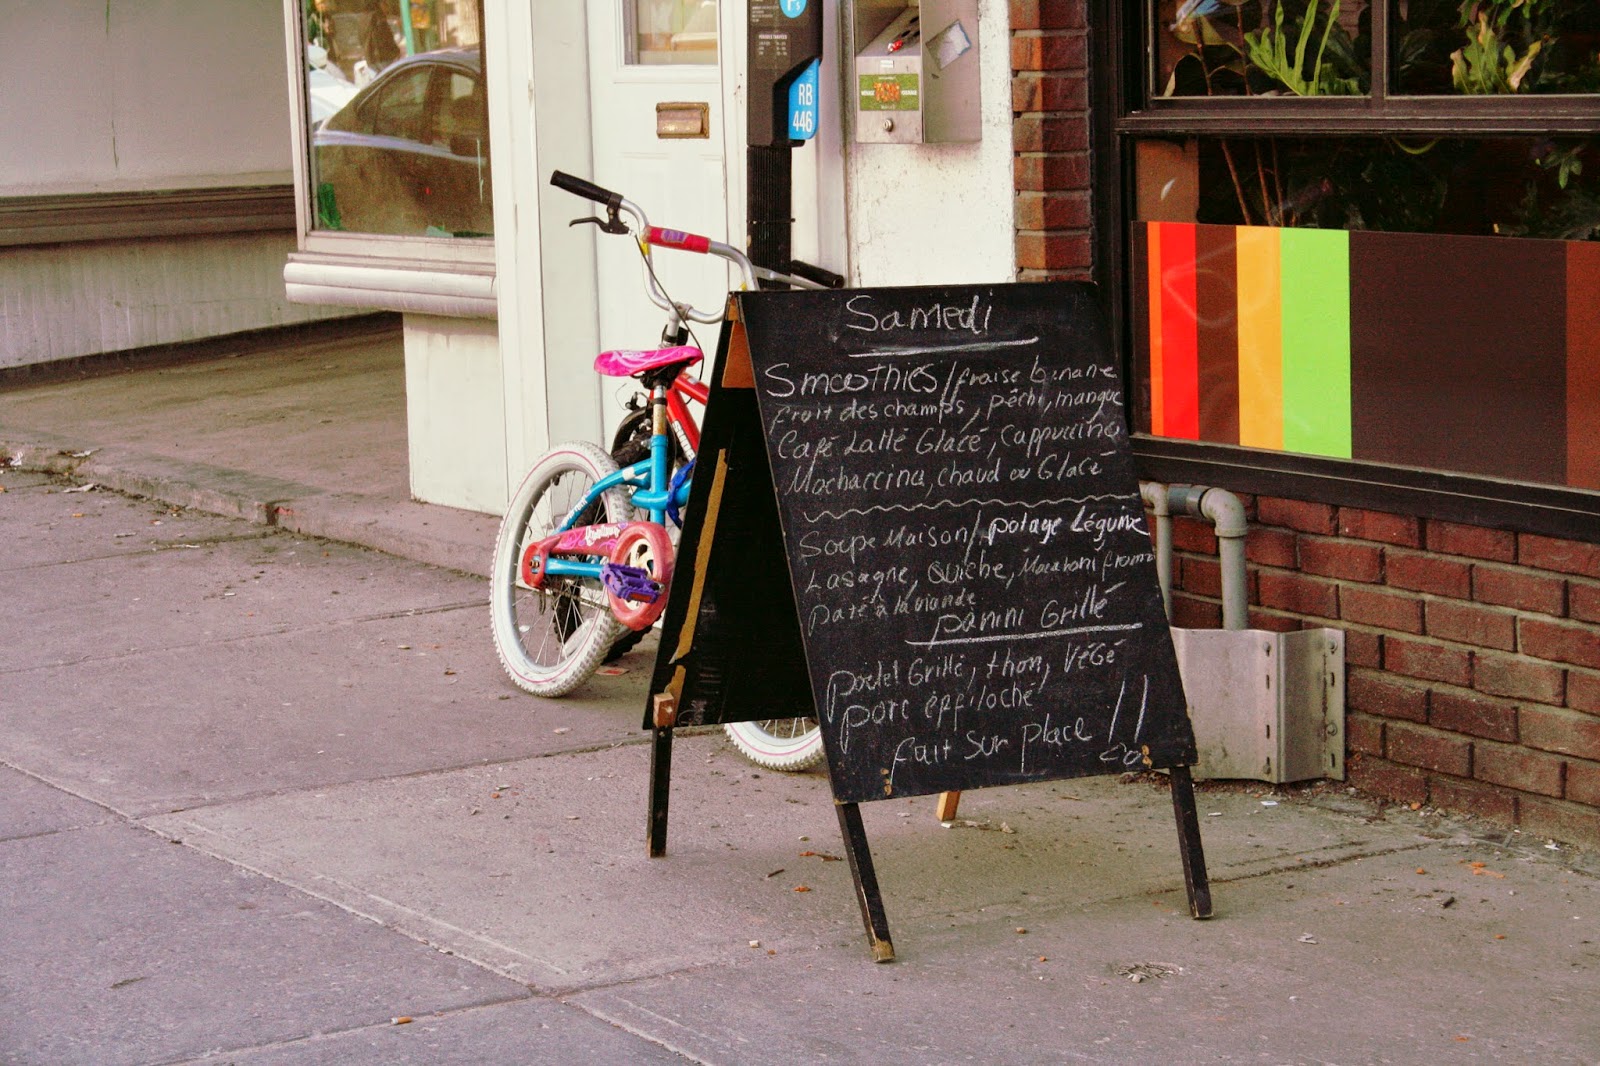 RB
446
Samedi
Smoothies/fraise banane
fruit des champs, pêche, mangue
Café Latté Glacé, Cappuccino
Mochaccino, chaud ou Glacé
Soupe Maison/potage Légume
Lasagne, Quiche, Macaroni froma
Paté à la viande
Panini Grillé
Poulet Grillé, thon, VéGé
porc éffiloché
fait sur place !!